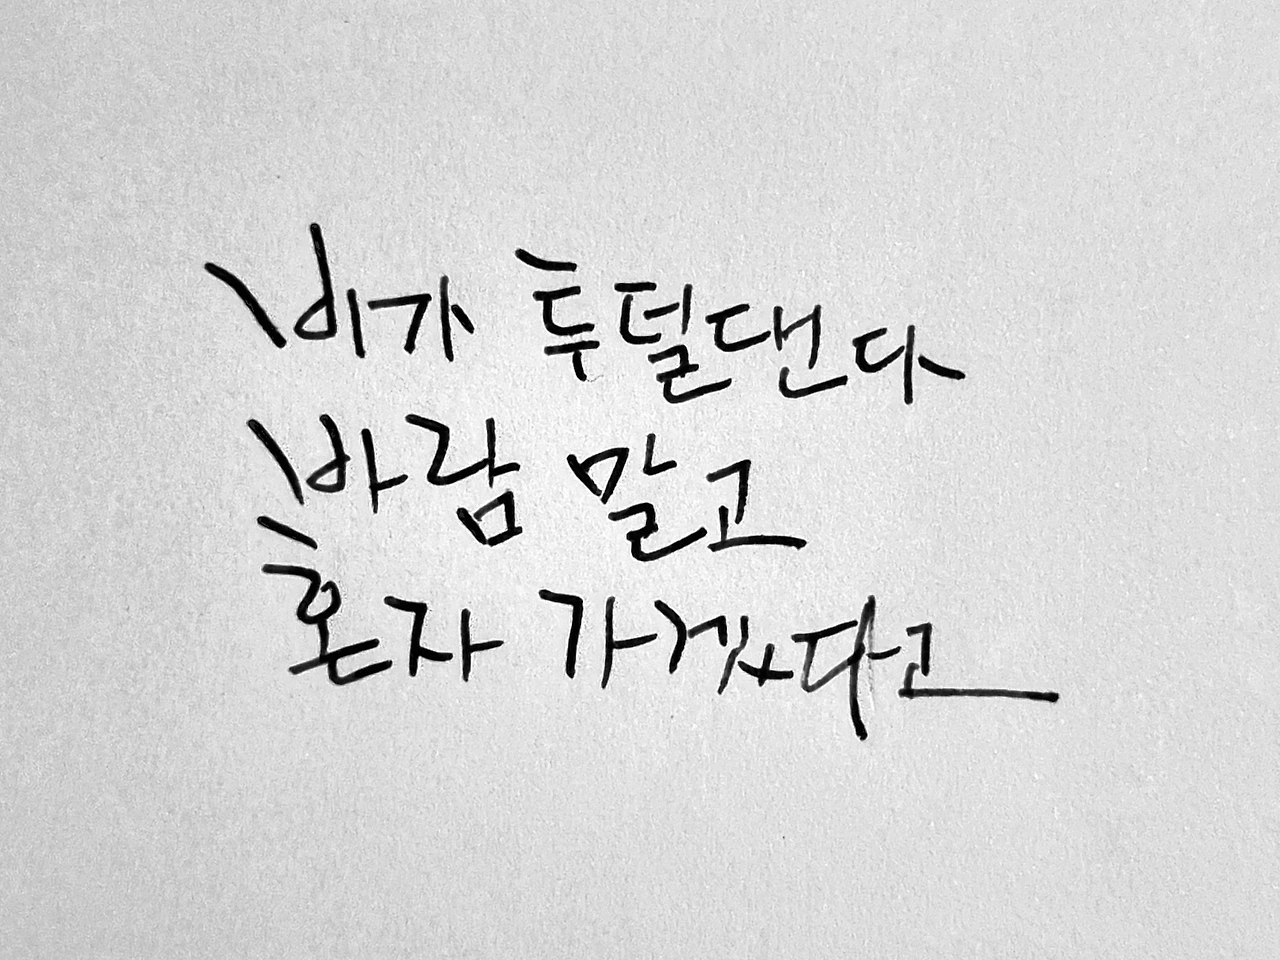 비가 투덜댄다
바람 말고
혼자 가겠다고